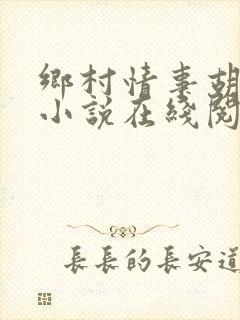 鄉村情事胡
小說在綫閱
長長的長安道